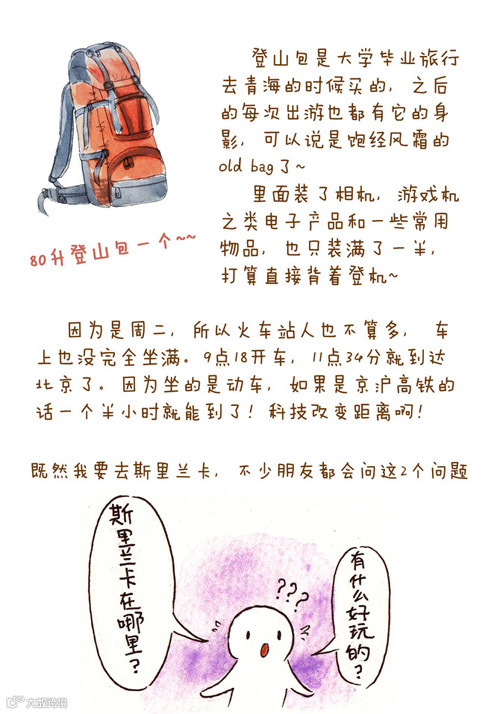 登山包是大学毕业旅行
去青海的时候买的，之后
的每次出游也都有它的身
影，可以说是饱经风霜的
old bag了~
里面装了相机，游戏机
之类电子产品和一些常用
物品，也只装满了一半，
打算直接背着登机~
80升登山包一个~~
因为是周二，所以火车站人也不算多，车
上也没完全坐满。9点18开车，11点34分就到达
北京了。因为坐的是动车，如果是京沪高铁的
话一个半小时就能到了！科技改变距离啊！
既然我要去斯里兰卡，不少朋友都会问这2个问题
斯里兰卡在哪里？
???
有什么好玩的？